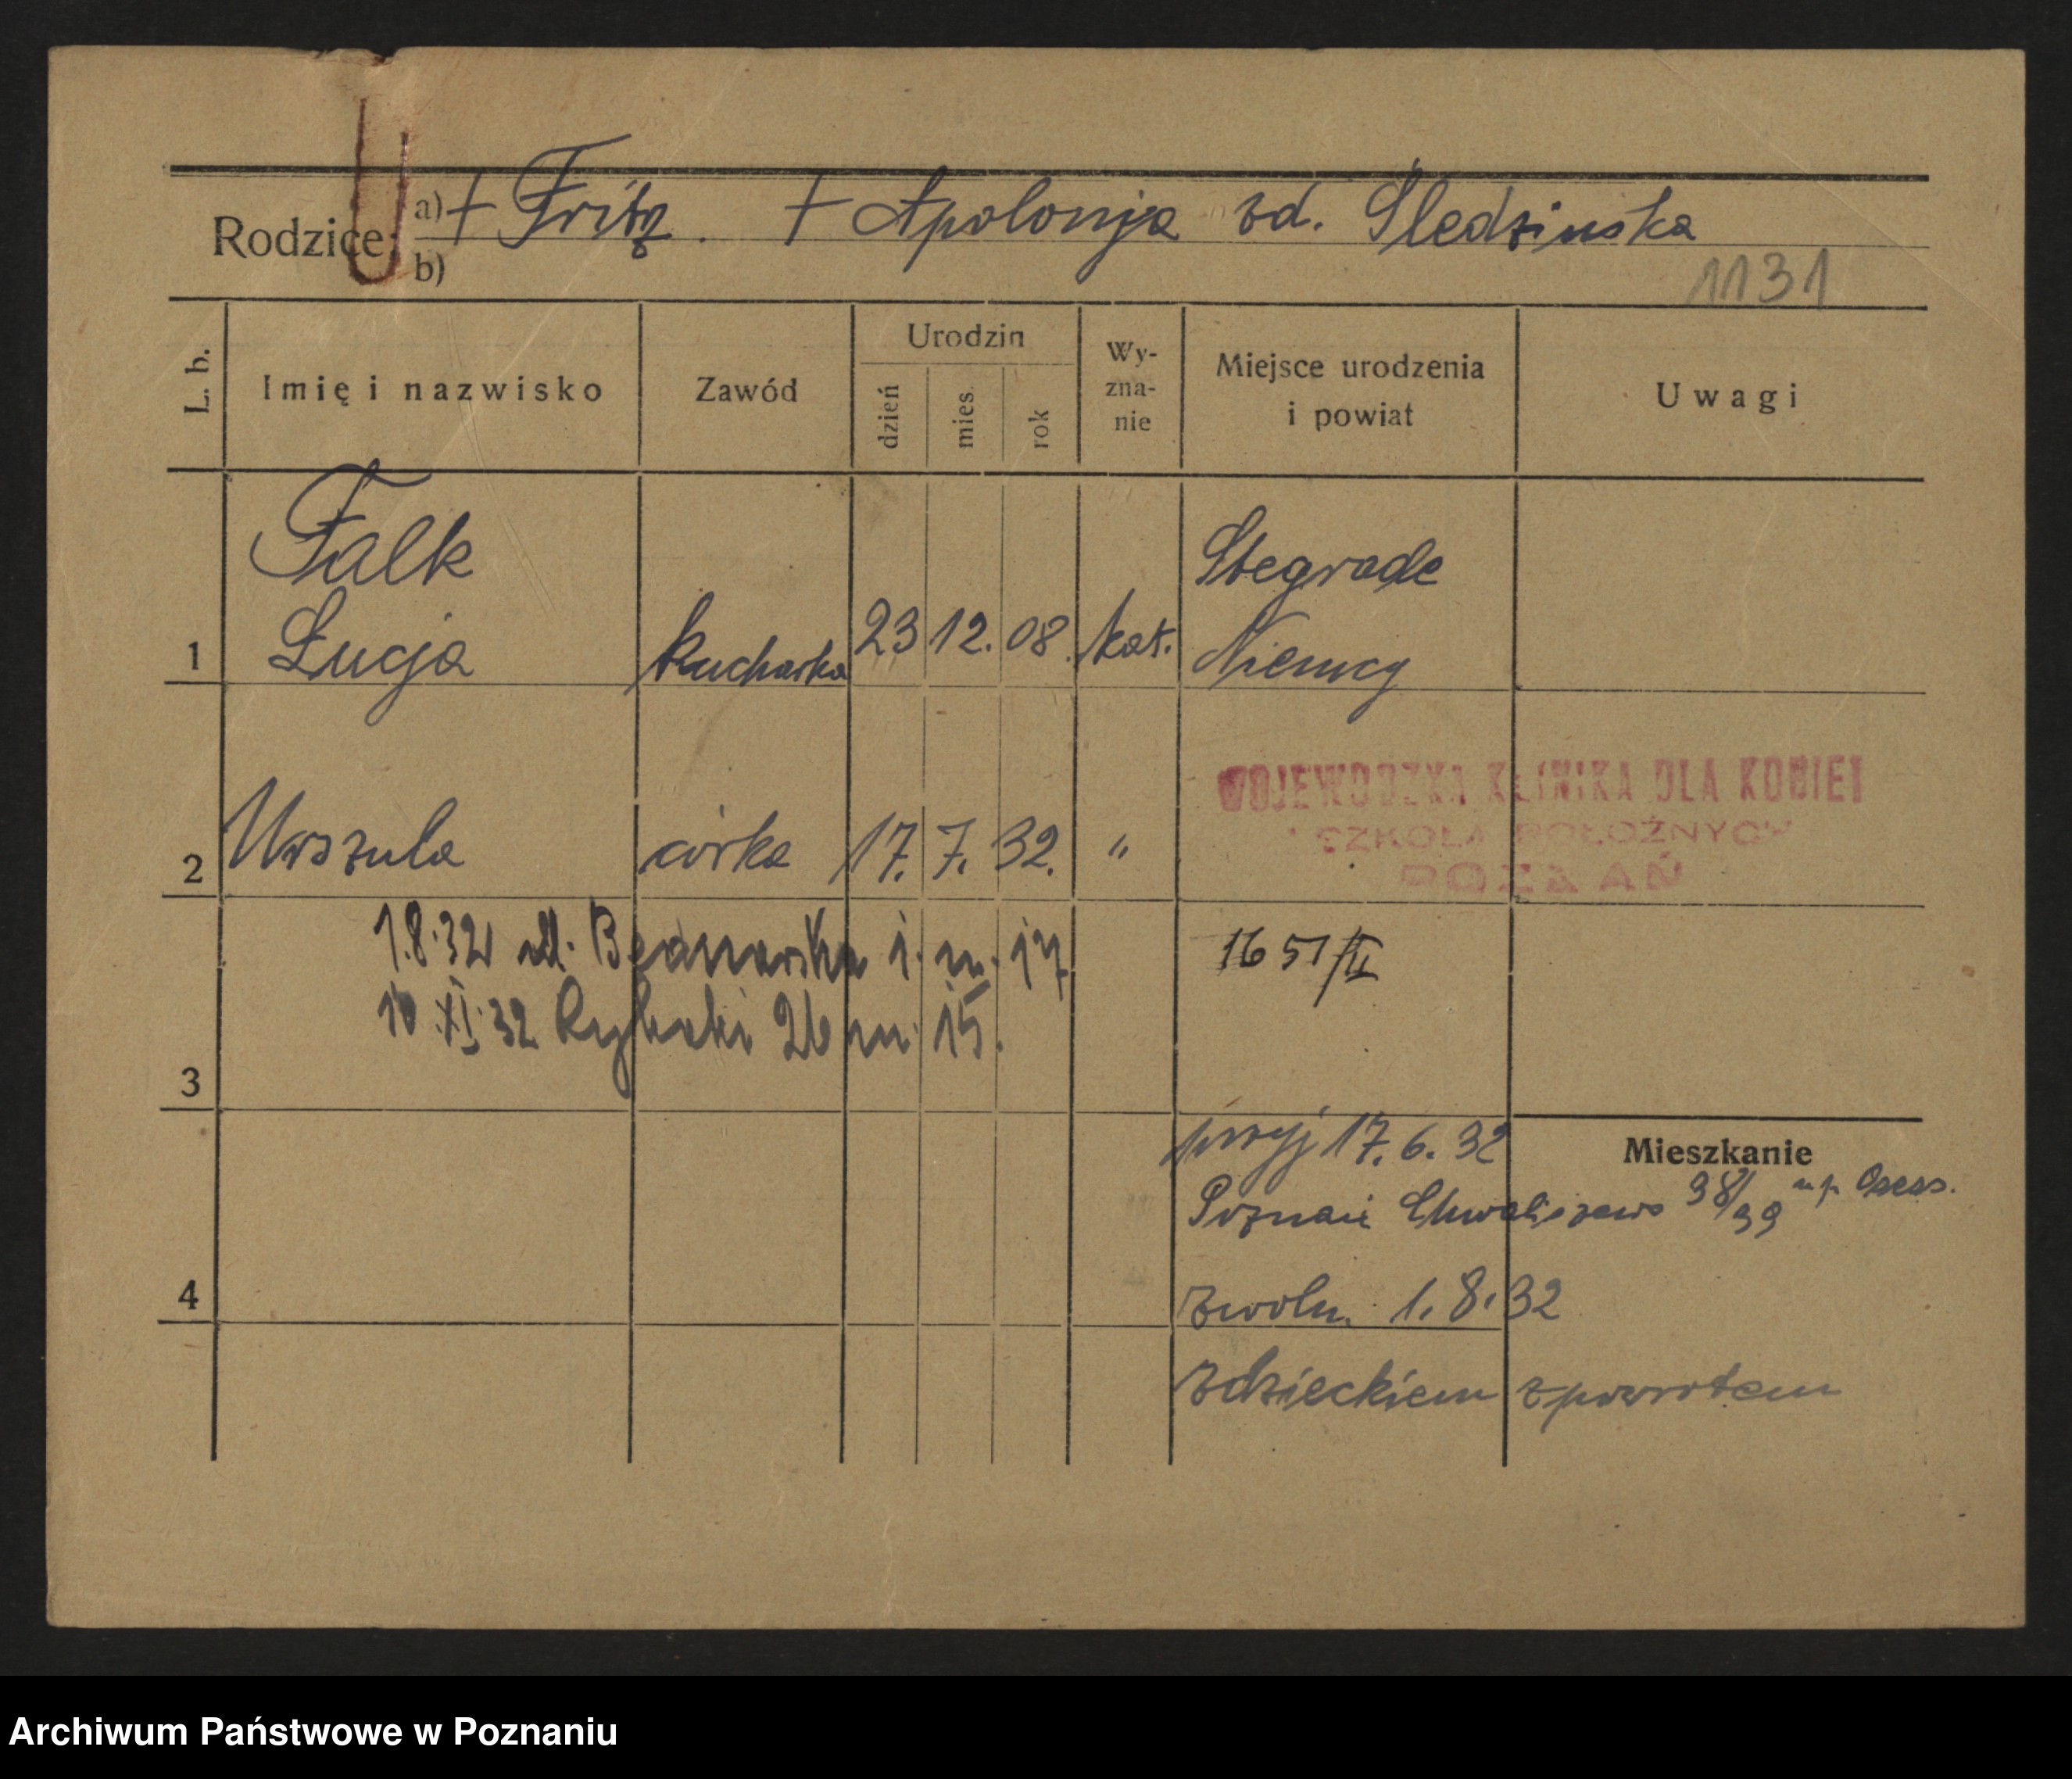 Rodzice: a) + Fritz. + Apolonja zd. Śledzinska
b)
1131
L. b. Imię i nazwisko Zawód Urodzin dzień mies. rok Wy-zna-nie Miejsce urodzenia i powiat Uwagi
Falk Stegrade
1 Łucja kucharka 23 12. 08. kat. Niemcy
WOJEWÓDZKA KLINIKA DLA KOBIET
I SZKOŁA POŁOŻNYCH
POZNAŃ
2 Urszula córka 17. 7. 32. "
1.8.32 ul. Bednarska 1. m. 17
1651/II
10.XI.32 Rybaki 26 m. 15.
3
przyj 17.6.32
Mieszkanie
Poznań Chwaliszewo 38/39
4 zwoln. 1.8.32
z dzieckiem z powrotem
Archiwum Państwowe w Poznaniu